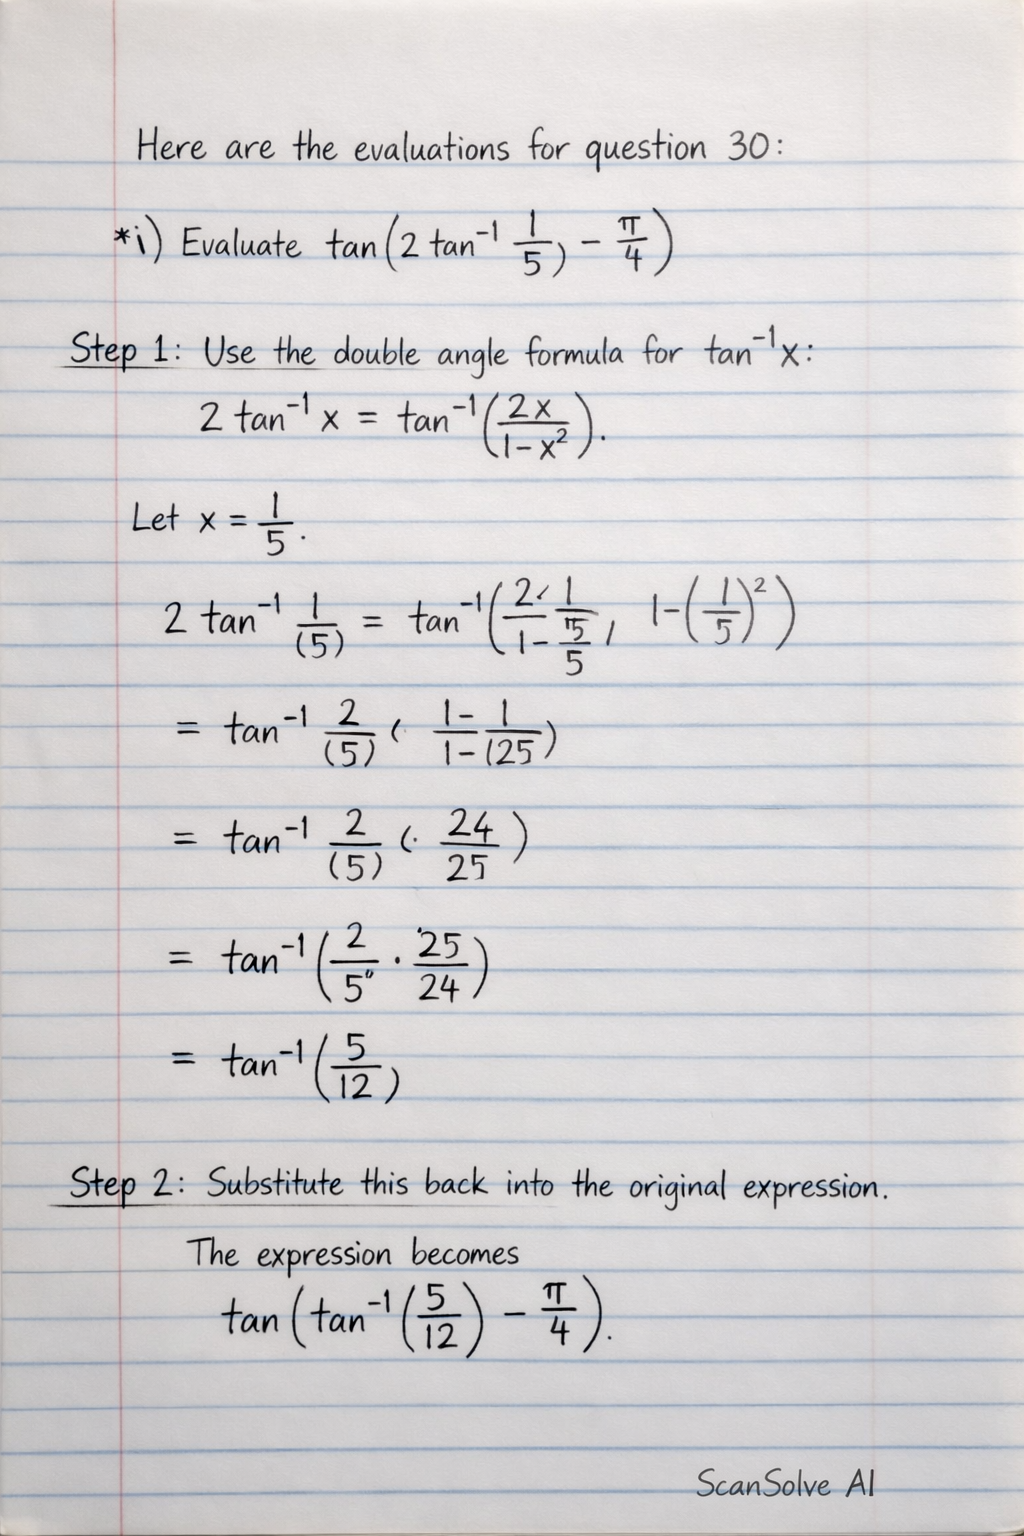 Here are the evaluations for question 30:
*i) Evaluate tan(2 tan⁻¹ 1/5) − π/4)
Step 1: Use the double angle formula for tan⁻¹x:
2 tan⁻¹ x = tan⁻¹(2x/(1−x²)).
Let x = 1/5.
2 tan⁻¹ 1/(5) = tan⁻¹(2⁄ 1/5 / 1− 5/5, 1−(1/5)²)
= tan⁻¹ 2/(5) ( 1− 1 / 1− (25)
= tan⁻¹ 2/(5) (· 24/25)
= tan⁻¹(2/5 · 25/24)
= tan⁻¹(5/12)
Step 2: Substitute this back into the original expression.
The expression becomes
tan(tan⁻¹(5/12) − π/4).
ScanSolve AI